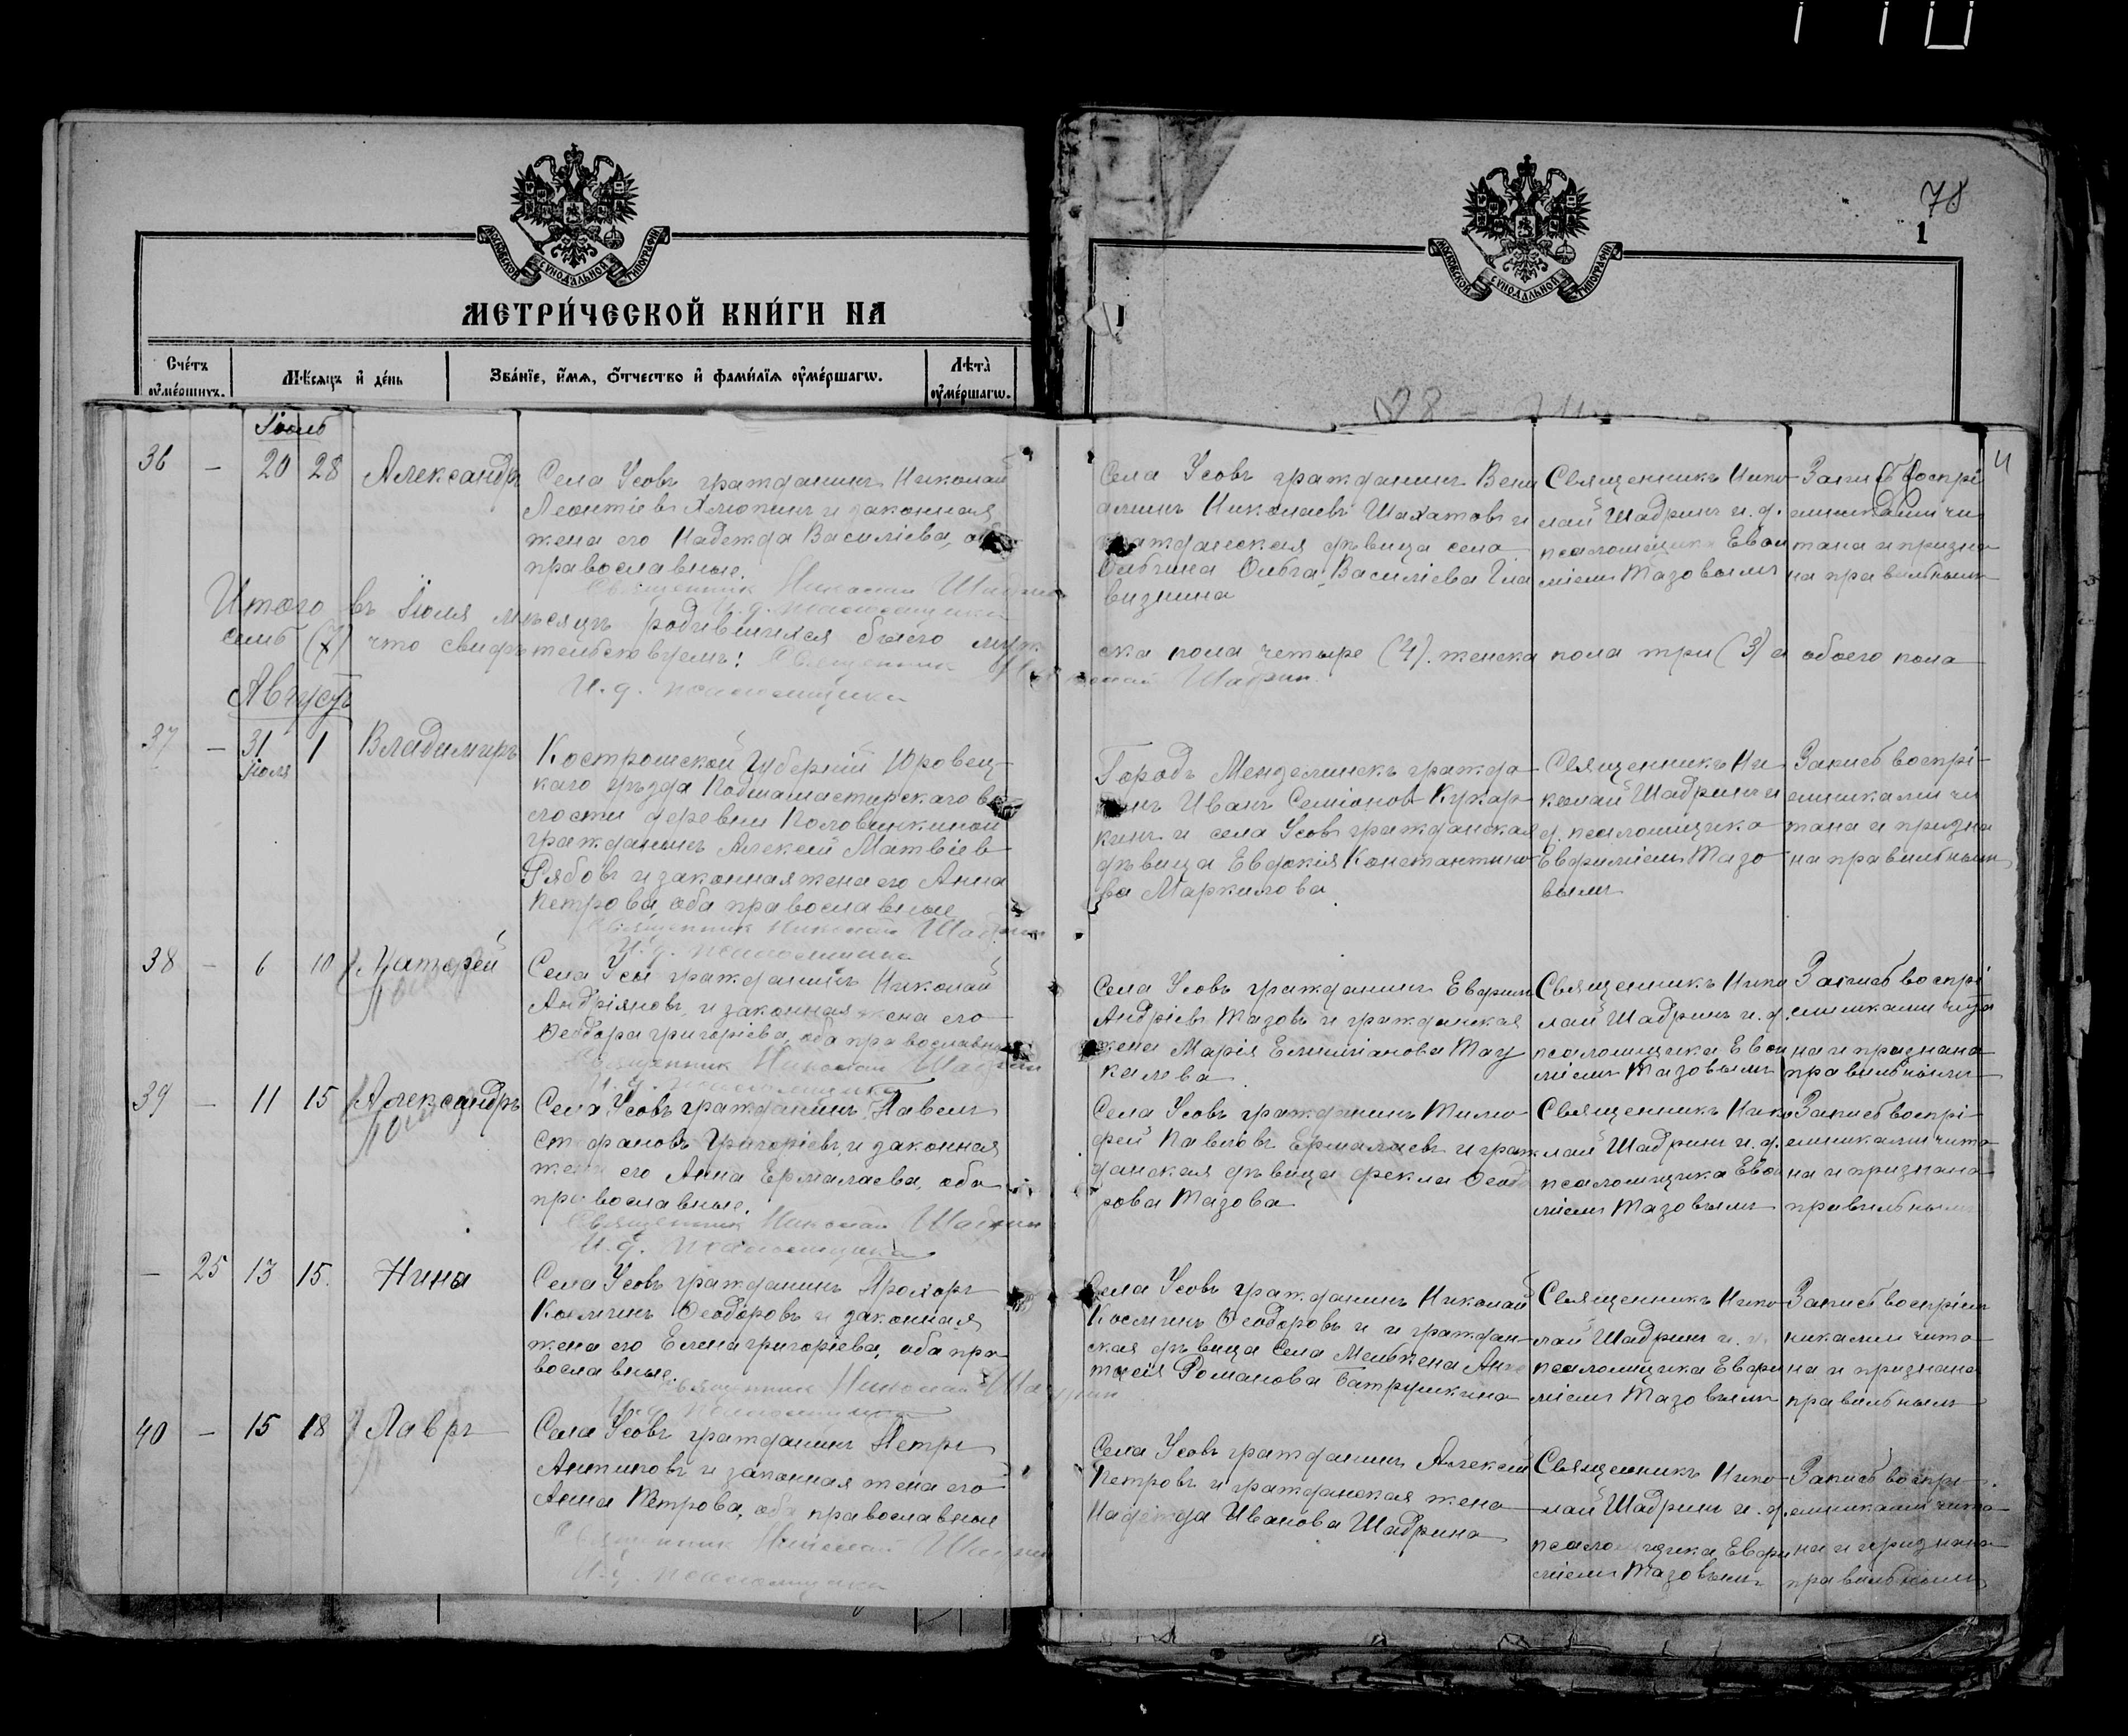 78
1
МОСКОВСКОЙ СѴНОДАЛЬНОЙ ТИПОГРАФІИ
МОСКОВСКОЙ СѴНОДАЛЬНОЙ ТИПОГРАФІИ
МЕТРИ́ЧЕСКОЙ КНИ́ГИ НА
Сче́тъ ᲂу҆ме́ршихъ.
Мѣ́сяцъ и҆ де́нь
Зва́нїе, и҆́мѧ, ѻ҆́тчество и҆ фами́лїѧ ᲂу҆ме́ршагѡ.
Лѣта̀ ᲂу҆ме́ршагѡ.
Іюль
36 — 20 28 Александръ
Села Усовъ гражданинъ Николай
Леонтіевъ Хлюпинъ и законная
жена его Надежда Василіева, оба
православные.
Священник Николай Шадрин
И. д. псаломщика
Села Усовъ гражданинъ Вени
аминъ Николаевъ Шахатовъ и
гражданская дѣвица села
Ольга Василіева
Священникъ Нико
лай Шадринъ и. д.
псаломщика Евѳи
міемъ Тазовымъ
Запись воспрі
емниками чи
тана и призна
на правильным
4
Итого въ Іюля мѣсяцъ родившихся было муж
ска пола четыре (4). женска пола три (3) а обоего пола
семь (7) что свидѣтельствуемъ: Священник Николай Шадрин.
И. д. псаломщика
Августъ
37 — 31 Іюля 1 Владимиръ
Костромской Губерніи Юровец-
каго уѣзда во
лости деревни Половинкиной
гражданинъ Алексей Матвіев
Рябовъ и законная жена его Анна
Петрова, оба православные
Священник Николай Шадрин
И. д. псаломщика
Городъ Мензелинскъ гражда
нинъ Иванъ Семіонов Кукар
кинъ и села Усовъ гражданская
дѣвица Евдокія Константино
ва Маркилова.
Священникъ Ни
колай Шадринъ и
д. псаломщика
Евфиміемъ Тазо
вымъ
Запись воспрі-
емниками чи
тана и призна
на правильным
38 — 6 10 Матфей
Села Усы гражданинъ Николай
Андріяновъ, и законная жена его
Ѳеодора Григоріева, оба православные
Священник Николай Шадрин
И. д. псаломщика
Села Усовъ гражданинъ Евфим
Андріевъ Тазовъ и гражданская
жена Марія Емиліанова
Священникъ Нико
лай Шадринъ и. д.
псаломщика Евѳи
міемъ Тазовымъ
Запись воспрі
емниками чита
на и признана
правильным
39 — 11 15 Александръ
Села Усовъ гражданинъ Павелъ
Стефановъ Григоріевъ и законная
жена его Анна Ермалаева, оба
православные.
Священник Николай Шадрин
И. д. псаломщика
Села Усовъ гражданинъ Тимо
фей Павловъ Ермалаевъ и граж
данская дѣвица Фекла Ѳеодо
рова Тазова
Священникъ Нико
лай Шадринъ и. д.
псаломщика Евѳи
міемъ Тазовымъ
Запись воспрі-
емниками чита
на и признана
правильным
— 25 13 15. Нина
Села Усовъ гражданинъ Прохоръ
Космичъ Ѳеодоровъ и законная
жена его Елена Григоріева, оба пра
вославные.
Священник Николай Шадрин
И. д. псаломщика
Села Усовъ гражданинъ Николай
Космичъ Ѳеодоровъ и и граждан-
ская дѣвица Села Мелькена Анас
тасія Романова Батрушкина
Священникъ Нико
лай Шадринъ и. д.
псаломщика Евфи
міемъ Тазовымъ
Запись воспріем
никами чита
на и признана
правильным
40 — 15 18 Лавръ
Села Усовъ гражданинъ Петръ
Антиповъ и законная жена его
Анна Петрова, оба православные
Священник Николай Шадрин
И. д. псаломщика
Села Усовъ гражданинъ Алексей
Петровъ и гражданская жена
Надежда Иванова Шадрина
Священникъ Нико
лай Шадринъ и. д.
псаломщика Евфи
міемъ Тазовымъ
Запись воспрі
емниками чита
на и признана
правильным